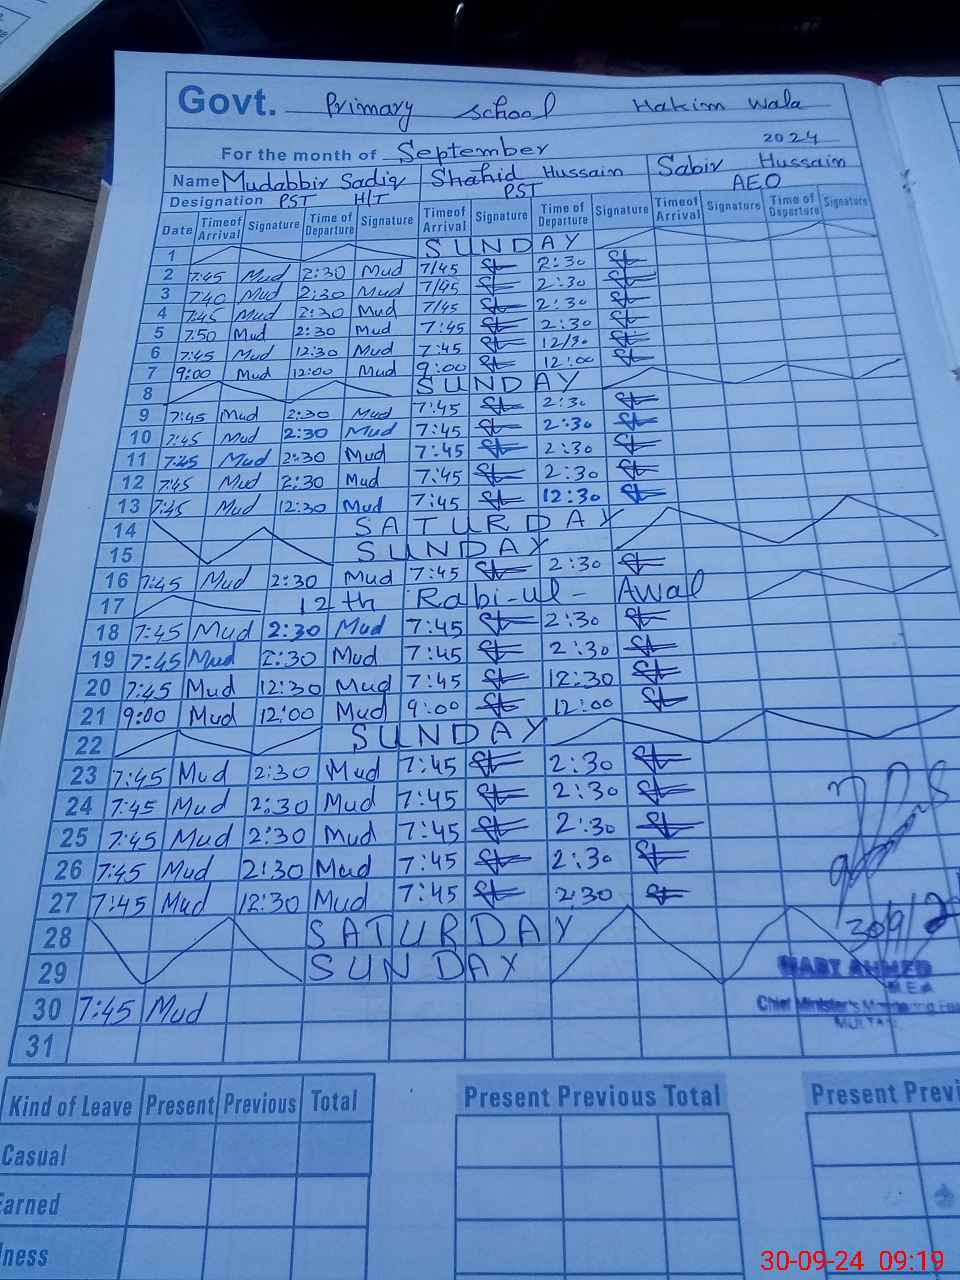 Govt. Primary School Hakim Wala
For the month of September 2024
Name Mudabbir Sadiq Shahid Hussain Sabir Hussain
Designation PST H/T PST AEO
Date Timeof Arrival Signature Time of Departure Signature Timeof Arrival Signature Time of Departure Signature Timeof Arrival Signature Time of Departure Signature
1 SUNDAY
2 7:45 Mud 2:30 Mud 7/45 2:30
3 7:40 Mud 2:30 Mud 7/45 2:30
4 7:45 Mud 2:30 Mud 7/45 2:30
5 7:50 Mud 2:30 Mud 7:45 2:30
6 7:45 Mud 12:30 Mud 7:45 12/30
7 9:00 Mud 12:00 Mud 9:00 12:00
8 SUNDAY
9 7:45 Mud 2:30 Mud 7:45 2:30
10 7:45 Mud 2:30 Mud 7:45 2:30
11 7:45 Mud 2:30 Mud 7:45 2:30
12 7:45 Mud 2:30 Mud 7:45 2:30
13 7:45 Mud 12:30 Mud 7:45 12:30
14 SATURDAY
15 SUNDAY
16 7:45 Mud 2:30 Mud 7:45 2:30
17 12th Rabi-ul-Awal
18 7:45 Mud 2:30 Mud 7:45 2:30
19 7:45 Mud 2:30 Mud 7:45 2:30
20 7:45 Mud 12:30 Mud 7:45 12:30
21 9:00 Mud 12:00 Mud 9:00 12:00
22 SUNDAY
23 7:45 Mud 2:30 Mud 7:45 2:30
24 7:45 Mud 2:30 Mud 7:45 2:30
25 7:45 Mud 2:30 Mud 7:45 2:30
26 7:45 Mud 2:30 Mud 7:45 2:30
27 7:45 Mud 12:30 Mud 7:45 2:30
28 SATURDAY 30/9/2
29 SUNDAY AHMED
M.E.A
30 7:45 Mud Chief Minister's Monitoring
MULTAN
31
Kind of Leave Present Previous Total Present Previous Total Present Previ
Casual
Earned
lness
30-09-24 09:19